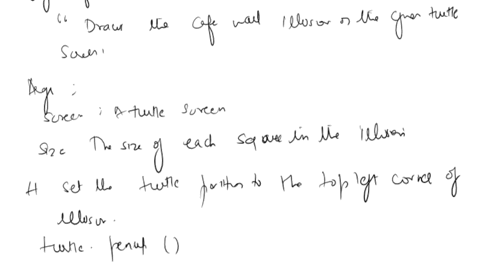 “ Draw the cafe wall illusion on the given turtle
Screen.
Args :
Screen : A turtle screen
Size The size of each square in the illusion
# Set the turtle position to the top left corner of
illusion.
turtle. penup ()